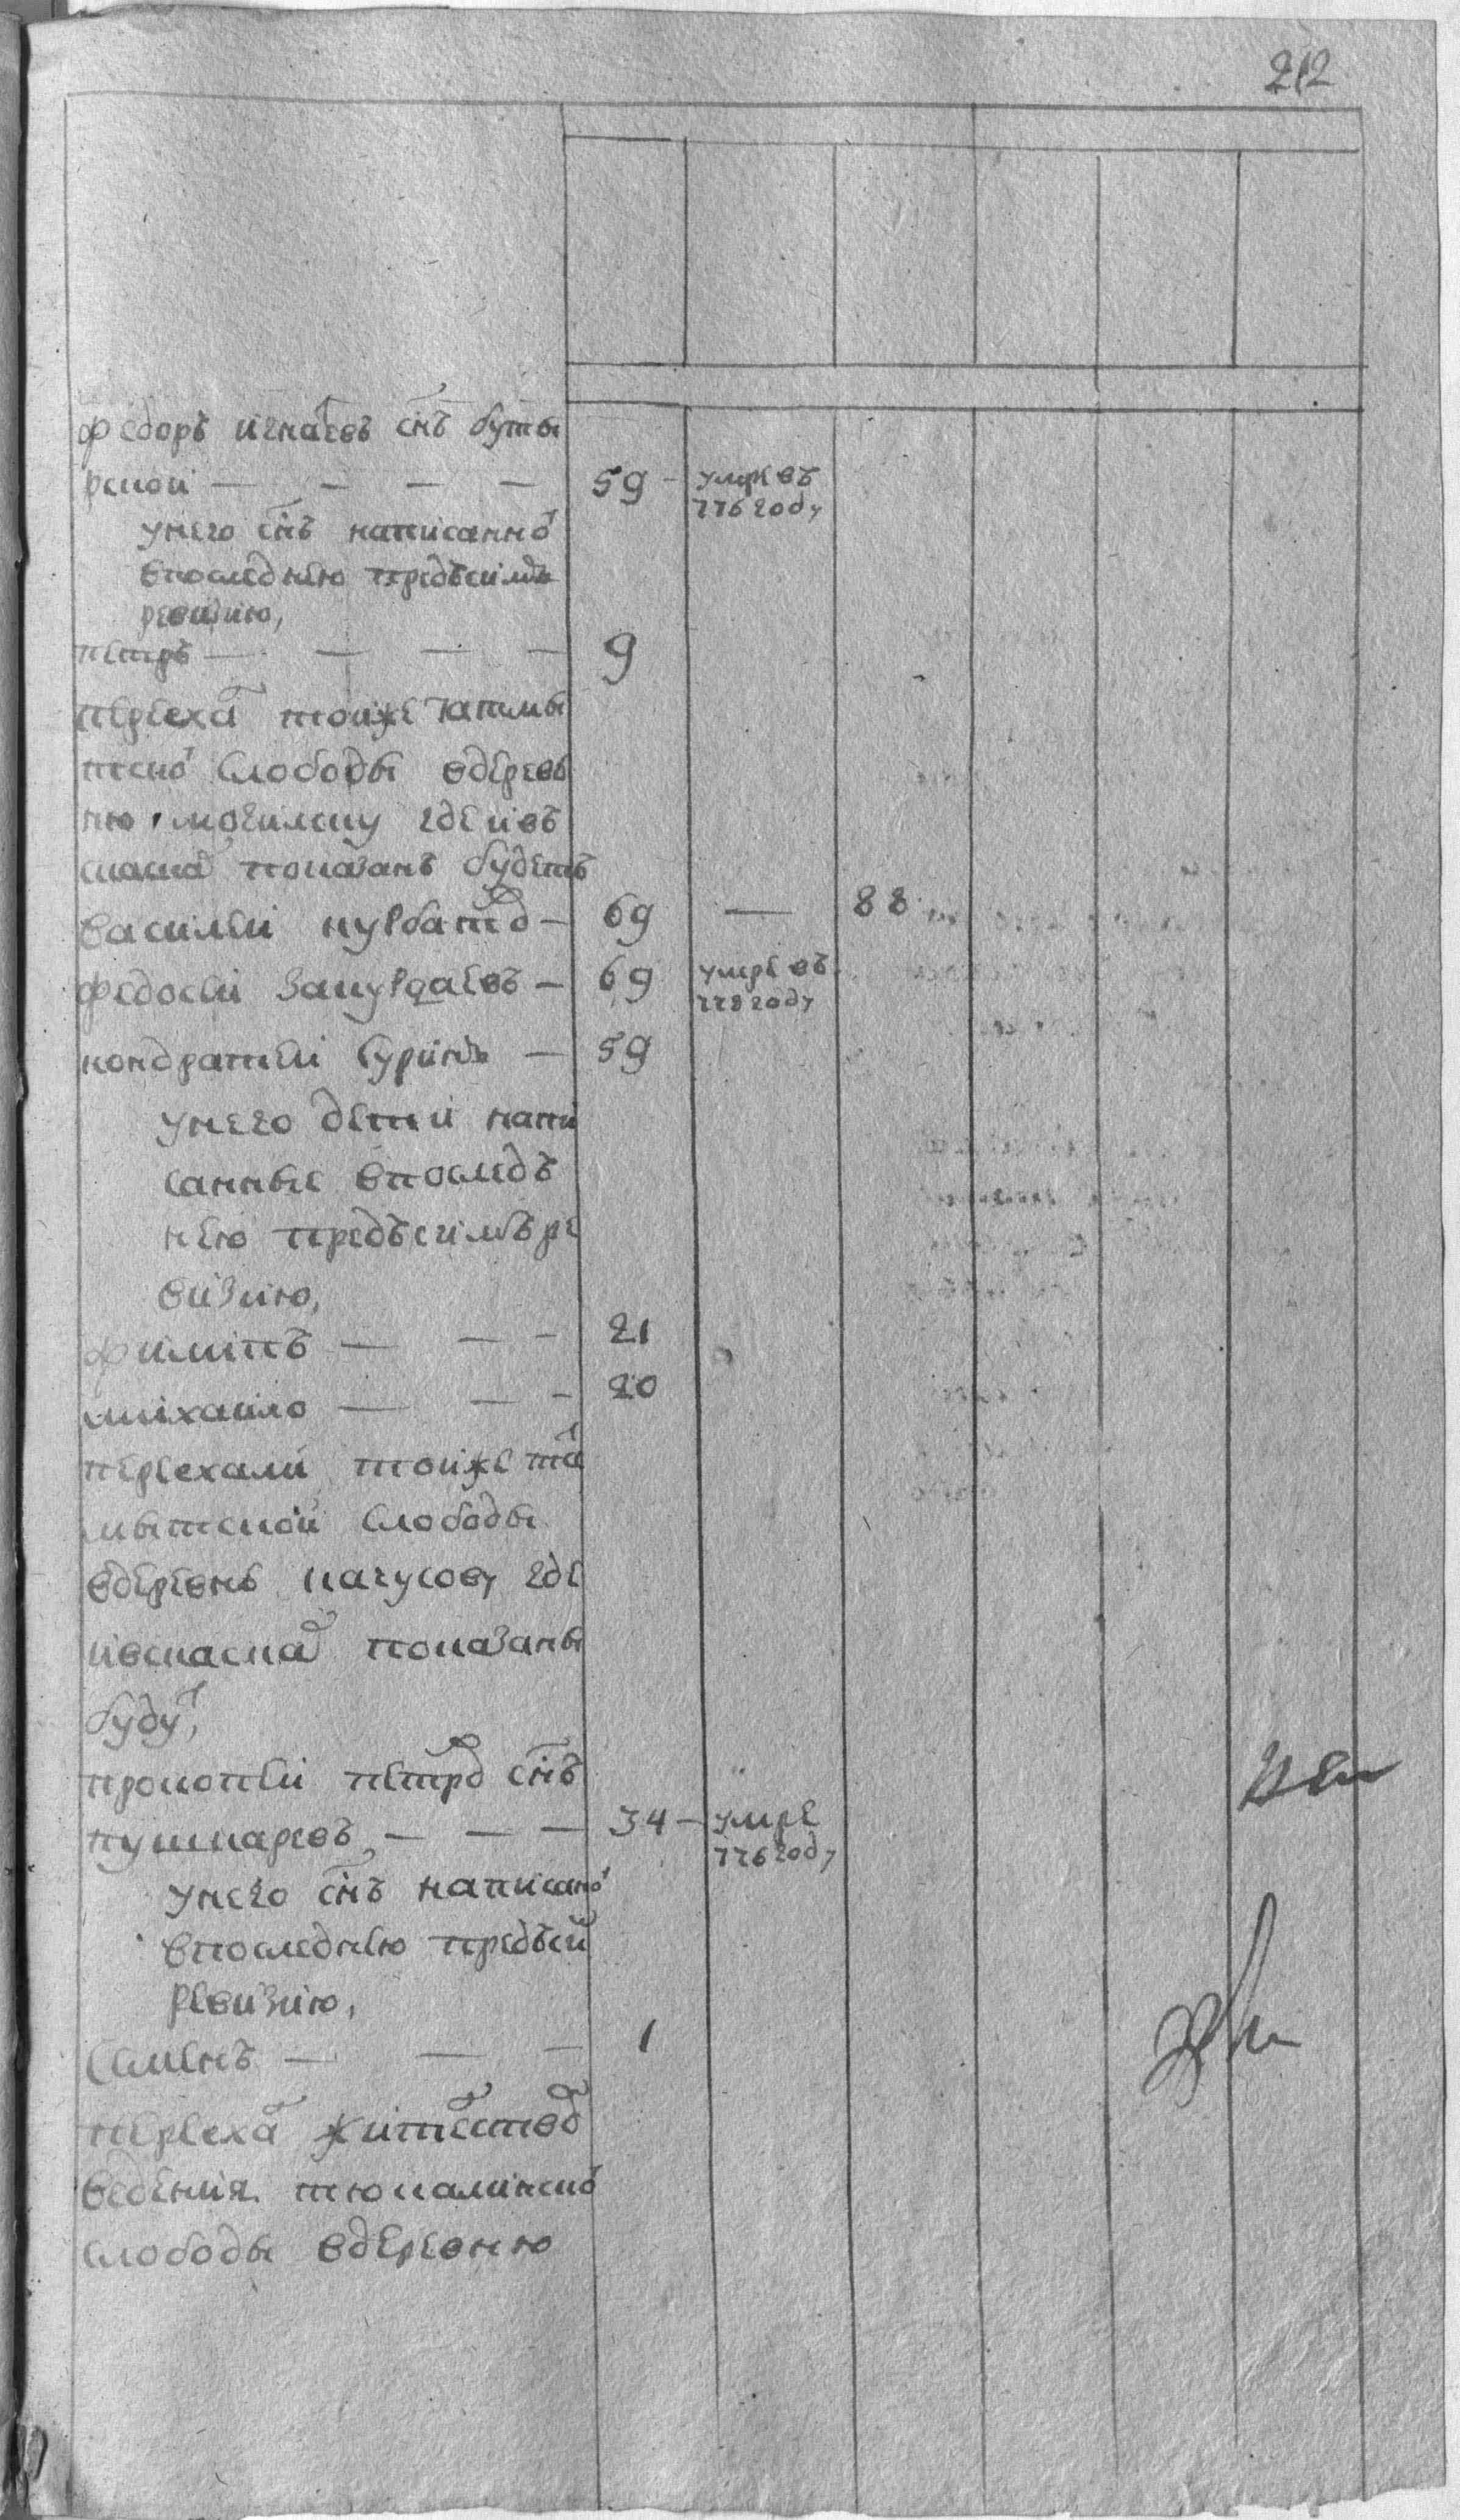 212
федоръ игнатевъ снъ буты
рской — — — — 59 - умре въ
776 году
унего снъ написанно
впоследнею предъсимъ
ревизию,
петръ — — — — 9
переехал тойже
ской слободы вдеревь
ню могилску где ивъ
скаска показанъ будетъ
василей курбатов — 69 — 88
федосей — 69 умре въ
778 году
кондратей суринъ — 59
унего детей напи
санные впоследъ
нею предъсимъ ре
визию,
филипъ — — - 21
михаило — — - 20
переехали тойже та
мытской слободы
вдеревнь кагусову где
ивскаска показаны
будут,
прокопей петров снъ
кушнаревъ, — — — 34 - умре
776 году
унего снъ написано
впоследнею предъси
ревизию,
саменъ — — — 1
переехал жительством
ведения тюкалинской
слободы вдеревню